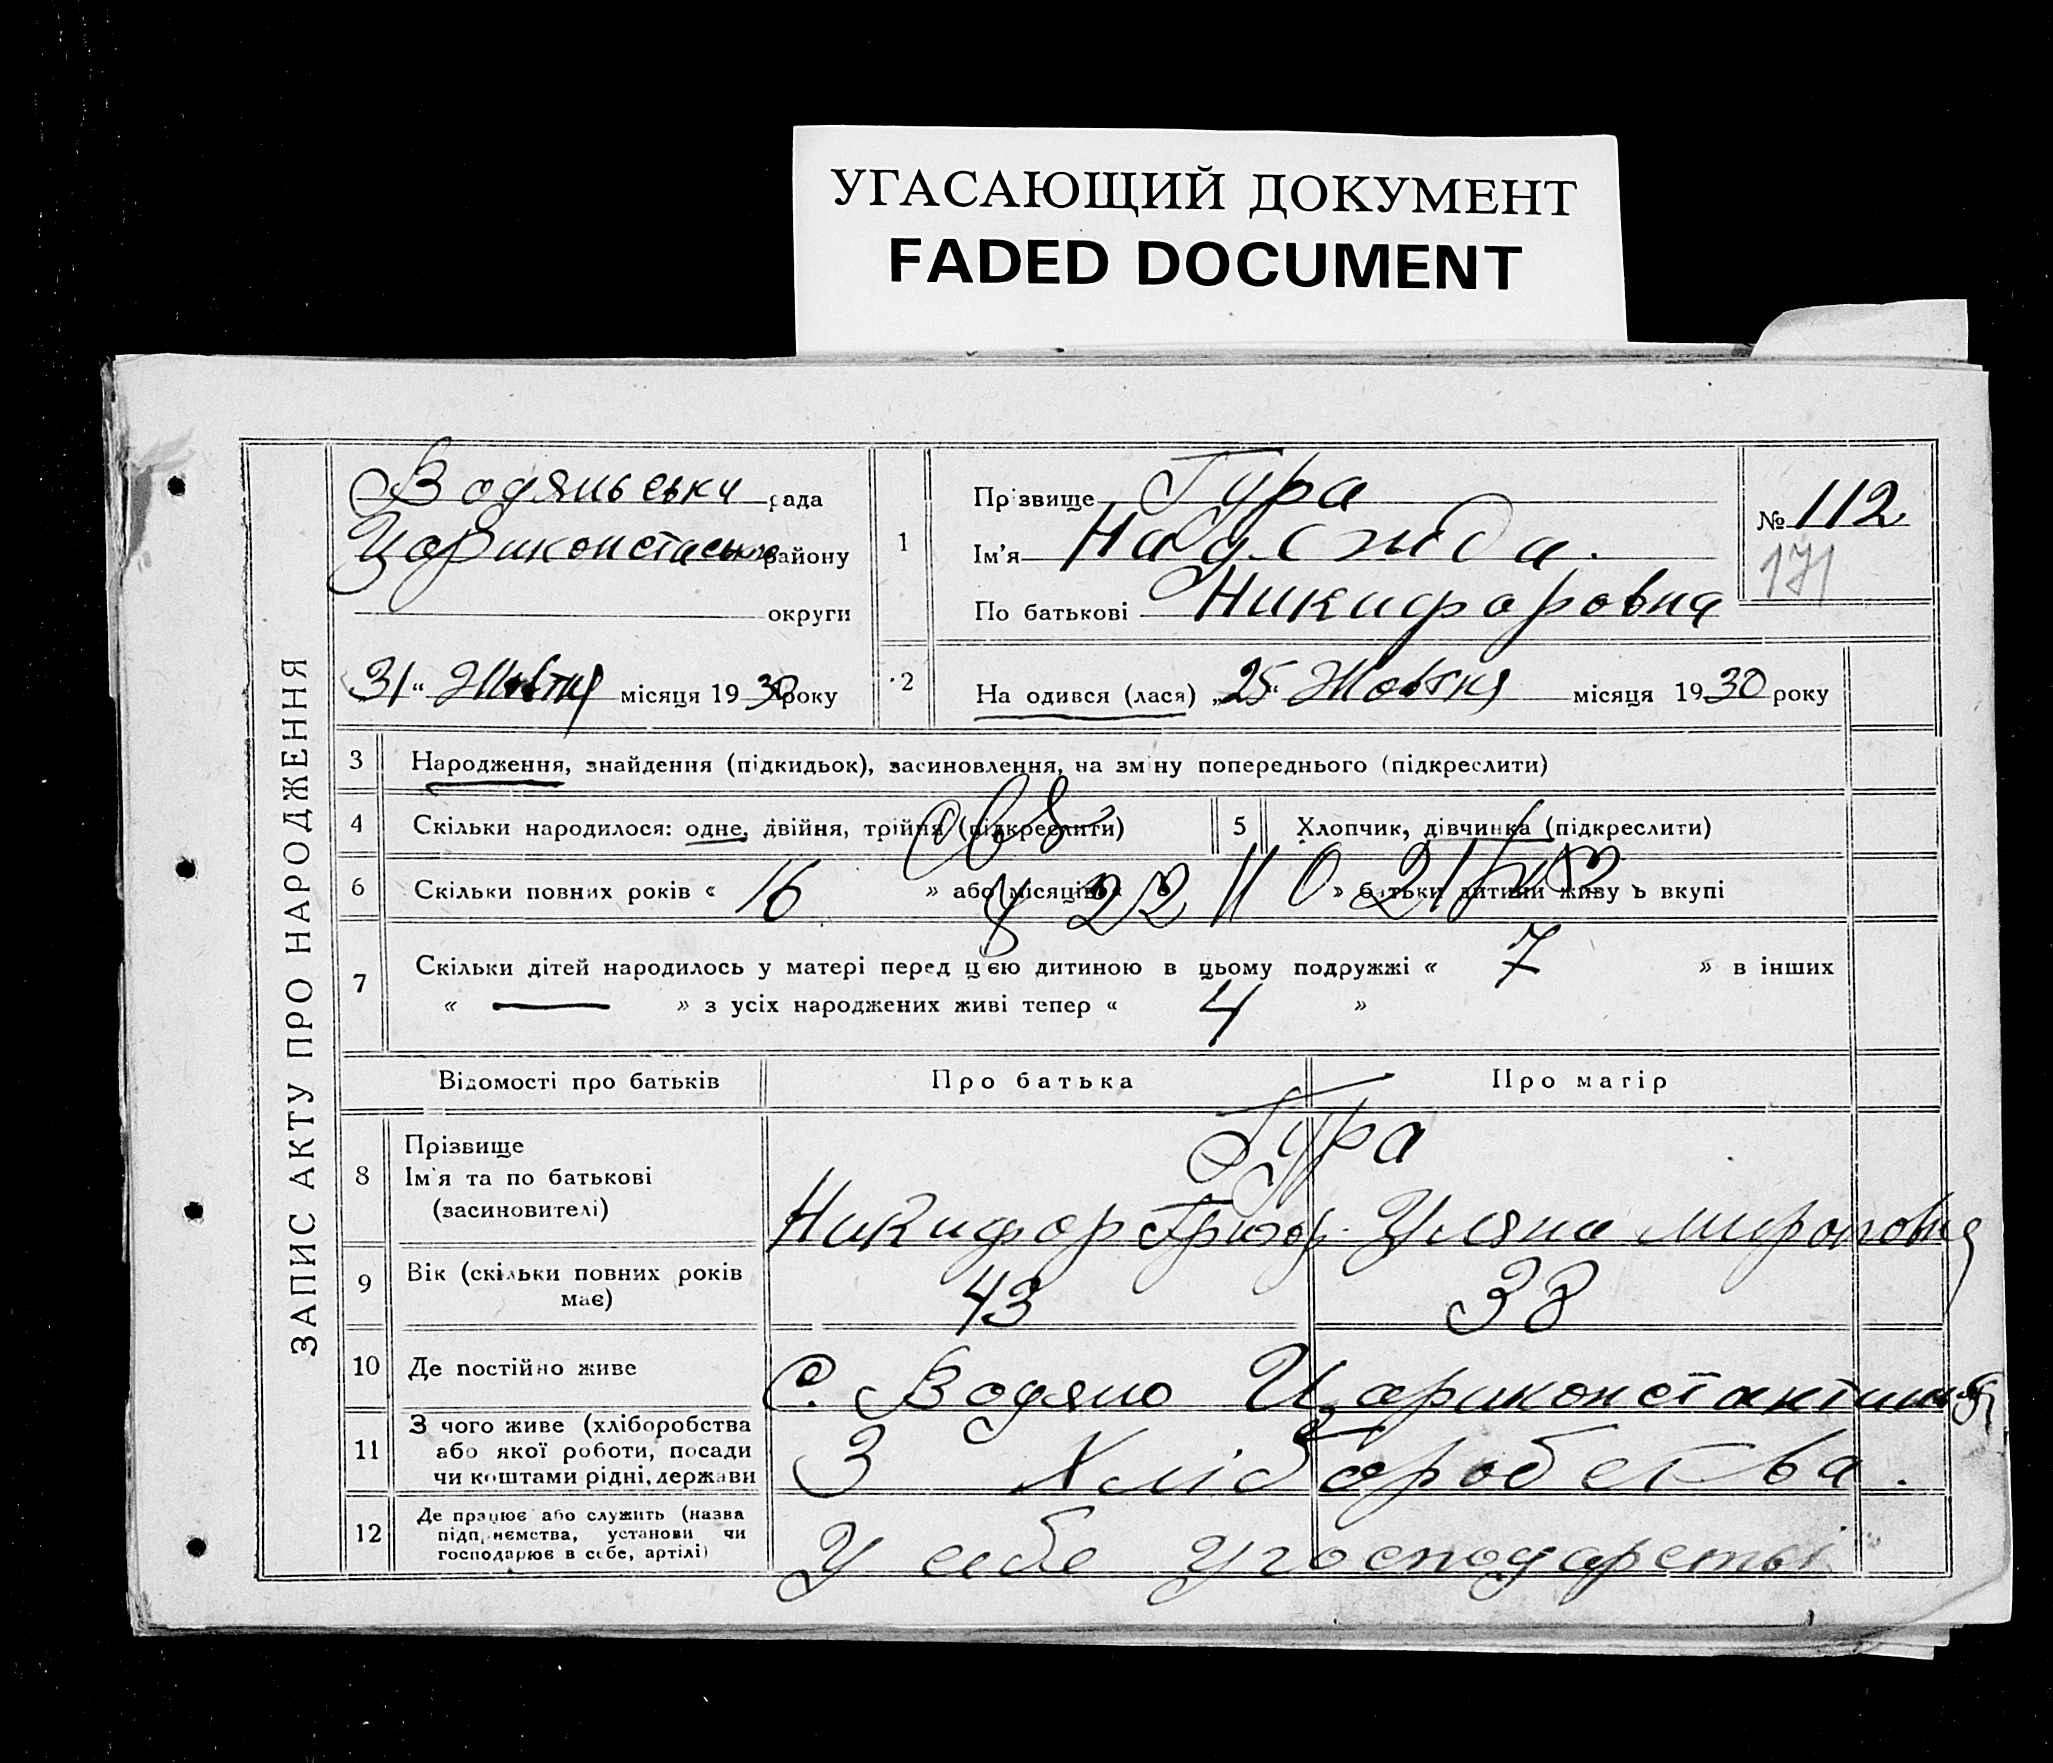 УГАСАЮЩИЙ ДОКУМЕНТ
FADED DOCUMENT
ЗАПИС АКТУ ПРО НАРОДЖЕННЯ
Водяньська рада
Цариконстаськ району
округи
31 “ Жовтня місяця 1930 року
1
Прізвище Гура
Ім’я Надежда.
По батькові Никифоровна
№ 112
171
2 На одився (лася) „25“ Жовтня місяця 1930 року
3 Народження, знайдення (підкидьок), засиновлення, на зміну попереднього (підкреслити)
4 Скільки народилося: одне, двійня, трійня (підкреслити) 5 Хлопчик, дівчинка (підкреслити)
6 Скільки повних років « 16 » або місяців « 22 » батьки дитини живуть вкупі
7 Скільки дітей народилось у матері перед цією дитиною в цьому подружжі « 7 » в інших
« — » з усіх народжених живі тепер « 4 »
Відомості про батьків Про батька Про матір
8 Прізвище
Ім’я та по батькові
(засиновителі)
Гура
Никифор Григор. Уляна Мироновна
9 Вік (скільки повних років
має)
43 38
10 Де постійно живе С. Водяно Цариконстантин
11 З чого живе (хліборобства
або якої роботи, посади
чи коштами рідні, держави
З Хліборобства.
12 Де працює або служить (назва
підприємства, установи чи
господарює в себе, артілі)
У себе у господарстві